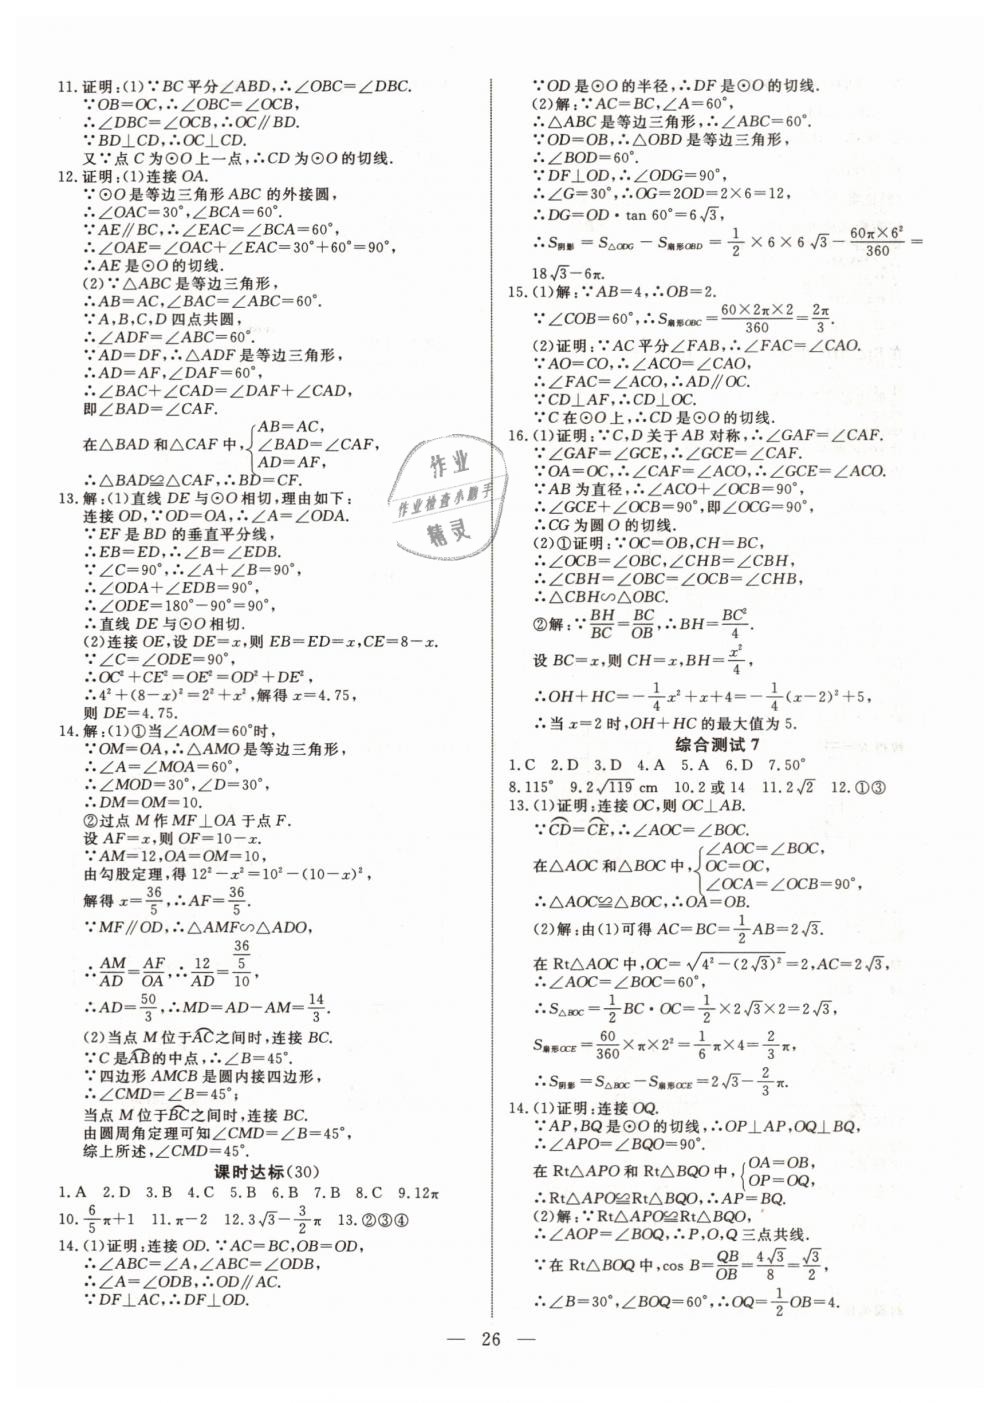 11.证明:(1)∵BC平分∠ABD,∴∠OBC=∠DBC.
∵OB=OC,∴∠OBC=∠OCB,
∴∠DBC=∠OCB,∴OC∥BD.
∵BD⊥CD,∴OC⊥CD.
又∵点C为⊙O上一点,∴CD为⊙O的切线.
12.证明:(1)连接OA.
∵⊙O是等边三角形ABC的外接圆,
∴∠OAC=30°,∠BCA=60°.
∵AE∥BC,∴∠EAC=∠BCA=60°,
∴∠OAE=∠OAC+∠EAC=30°+60°=90°,
∴AE是⊙O的切线.
(2)∵△ABC是等边三角形,
∴AB=AC,∠BAC=∠ABC=60°.
∵A,B,C,D四点共圆,
∴∠ADF=∠ABC=60°.
∵AD=DF,∴△ADF是等边三角形,
∴AD=AF,∠DAF=60°,
∴∠BAC+∠CAD=∠DAF+∠CAD,
即∠BAD=∠CAF.
在△BAD和△CAF中,{AB=AC, ∠BAD=∠CAF, AD=AF,
∴△BAD≌△CAF,∴BD=CF.
13.解:(1)直线DE与⊙O相切,理由如下:
连接OD,∵OD=OA,∴∠A=∠ODA.
∵EF是BD的垂直平分线,
∴EB=ED,∴∠B=∠EDB.
∵∠C=90°,∴∠A+∠B=90°,
∴∠ODA+∠EDB=90°,
∴∠ODE=180°-90°=90°,
∴直线DE与⊙O相切.
(2)连接OE,设DE=x,则EB=ED=x,CE=8-x.
∵∠C=∠ODE=90°,
∴OC²+CE²=OE²=OD²+DE²,
∴4²+(8-x)²=2²+x²,解得x=4.75,
则DE=4.75.
14.解:(1)①当∠AOM=60°时,
∵OM=OA,∴△AMO是等边三角形,
∴∠A=∠MOA=60°,
∴∠MOD=30°,∠D=30°,
∴DM=OM=10.
②过点M作MF⊥OA于点F.
设AF=x,则OF=10-x.
∵AM=12,OA=OM=10,
由勾股定理,得12²-x²=10²-(10-x)²,
解得x=36/5,∴AF=36/5.
∵MF∥OD,∴△AMF∽△ADO,
∴AM/AD=AF/OA,∴12/AD=(36/5)/10,
∴AD=50/3,∴MD=AD-AM=14/3.
(2)当点M位于AC⌒之间时,连接BC.
∵C是AB⌒的中点,∴∠B=45°.
∵四边形AMCB是圆内接四边形,
∴∠CMD=∠B=45°;
当点M位于BC⌒之间时,连接BC.
由圆周角定理可知∠CMD=∠B=45°,
综上所述,∠CMD=45°.
课时达标(30)
1.A 2.D 3.B 4.C 5.B 6.B 7.B 8.C 9.12π
10.6/5π+1 11.π-2 12.3√3-3/2π 13.②③④
14.(1)证明:连接OD.∵AC=BC,OB=OD,
∴∠ABC=∠A,∠ABC=∠ODB,
∴∠A=∠ODB,∴OD∥AC.
∵DF⊥AC,∴DF⊥OD.
∵OD是⊙O的半径,∴DF是⊙O的切线.
(2)解:∵AC=BC,∠A=60°,
∴△ABC是等边三角形,∴∠ABC=60°.
∵OD=OB,∴△OBD是等边三角形,
∴∠BOD=60°.
∵DF⊥OD,∴∠ODG=90°,
∴∠G=30°,∴OG=2OD=2×6=12,
∴DG=OD·tan 60°=6√3,
∴S阴影=S△ODG-S扇形OBD=1/2×6×6√3-60π×6²/360=
18√3-6π.
15.(1)解:∵AB=4,∴OB=2.
∵∠COB=60°,∴S扇形OBC=60×2π×2/360=2π/3.
(2)证明:∵AC平分∠FAB,∴∠FAC=∠CAO.
∵AO=CO,∴∠ACO=∠CAO,
∴∠FAC=∠ACO,∴AD∥OC.
∵CD⊥AF,∴CD⊥OC.
∵C在⊙O上,∴CD是⊙O的切线.
16.(1)证明:∵C,D关于AB对称,∴∠GAF=∠CAF.
∵∠GAF=∠GCE,∴∠GCE=∠CAF.
∵OA=OC,∴∠CAF=∠ACO,∴∠GCE=∠ACO.
∵AB为直径,∴∠ACO+∠OCB=90°,
∴∠GCE+∠OCB=90°,即∠OCG=90°,
∴CG为圆O的切线.
(2)①证明:∵OC=OB,CH=BC,
∴∠OCB=∠OBC,∠CHB=∠CBH,
∴∠CBH=∠OBC=∠OCB=∠CHB,
∴△CBH∽△OBC.
②解:∵BH/BC=BC/OB,∴BH=BC²/4.
设BC=x,则CH=x,BH=x²/4,
∴OH+HC=-1/4x²+x+4=-1/4(x-2)²+5,
∴当x=2时,OH+HC的最大值为5.
综合测试7
1.C 2.D 3.D 4.A 5.A 6.D 7.50°
8.115° 9.2√119 cm 10.2或14 11.2√2 12.①③
13.(1)证明:连接OC,则OC⊥AB.
∵CD⌒=CE⌒,∴∠AOC=∠BOC.
在△AOC和△BOC中,{∠AOC=∠BOC, OC=OC, ∠OCA=∠OCB=90°,
∴△AOC≌△BOC,∴OA=OB.
(2)解:由(1)可得AC=BC=1/2AB=2√3.
在Rt△AOC中,OC=√(4²-(2√3)²)=2,AC=2√3,
∴∠AOC=∠BOC=60°,
∴S△BOC=1/2BC·OC=1/2×2√3×2=2√3,
S扇形OCE=60/360×π×2²=1/6π×4=2/3π,
∴S阴影=S△BOC-S扇形OCE=2√3-2/3π.
14.(1)证明:连接OQ.
∵AP,BQ是⊙O的切线,∴OP⊥AP,OQ⊥BQ,
∴∠APO=∠BQO=90°.
在Rt△APO和Rt△BQO中,{OA=OB, OP=OQ,
∴Rt△APO≌Rt△BQO,∴AP=BQ.
(2)解:∵Rt△APO≌Rt△BQO,
∴∠AOP=∠BOQ,∴P,O,Q三点共线.
∵在Rt△BOQ中,cos B=QB/OB=4√3/8=√3/2,
∴∠B=30°,∠BOQ=60°,∴OQ=1/2OB=4.
— 26 —
作业
作业检查小助手
精灵